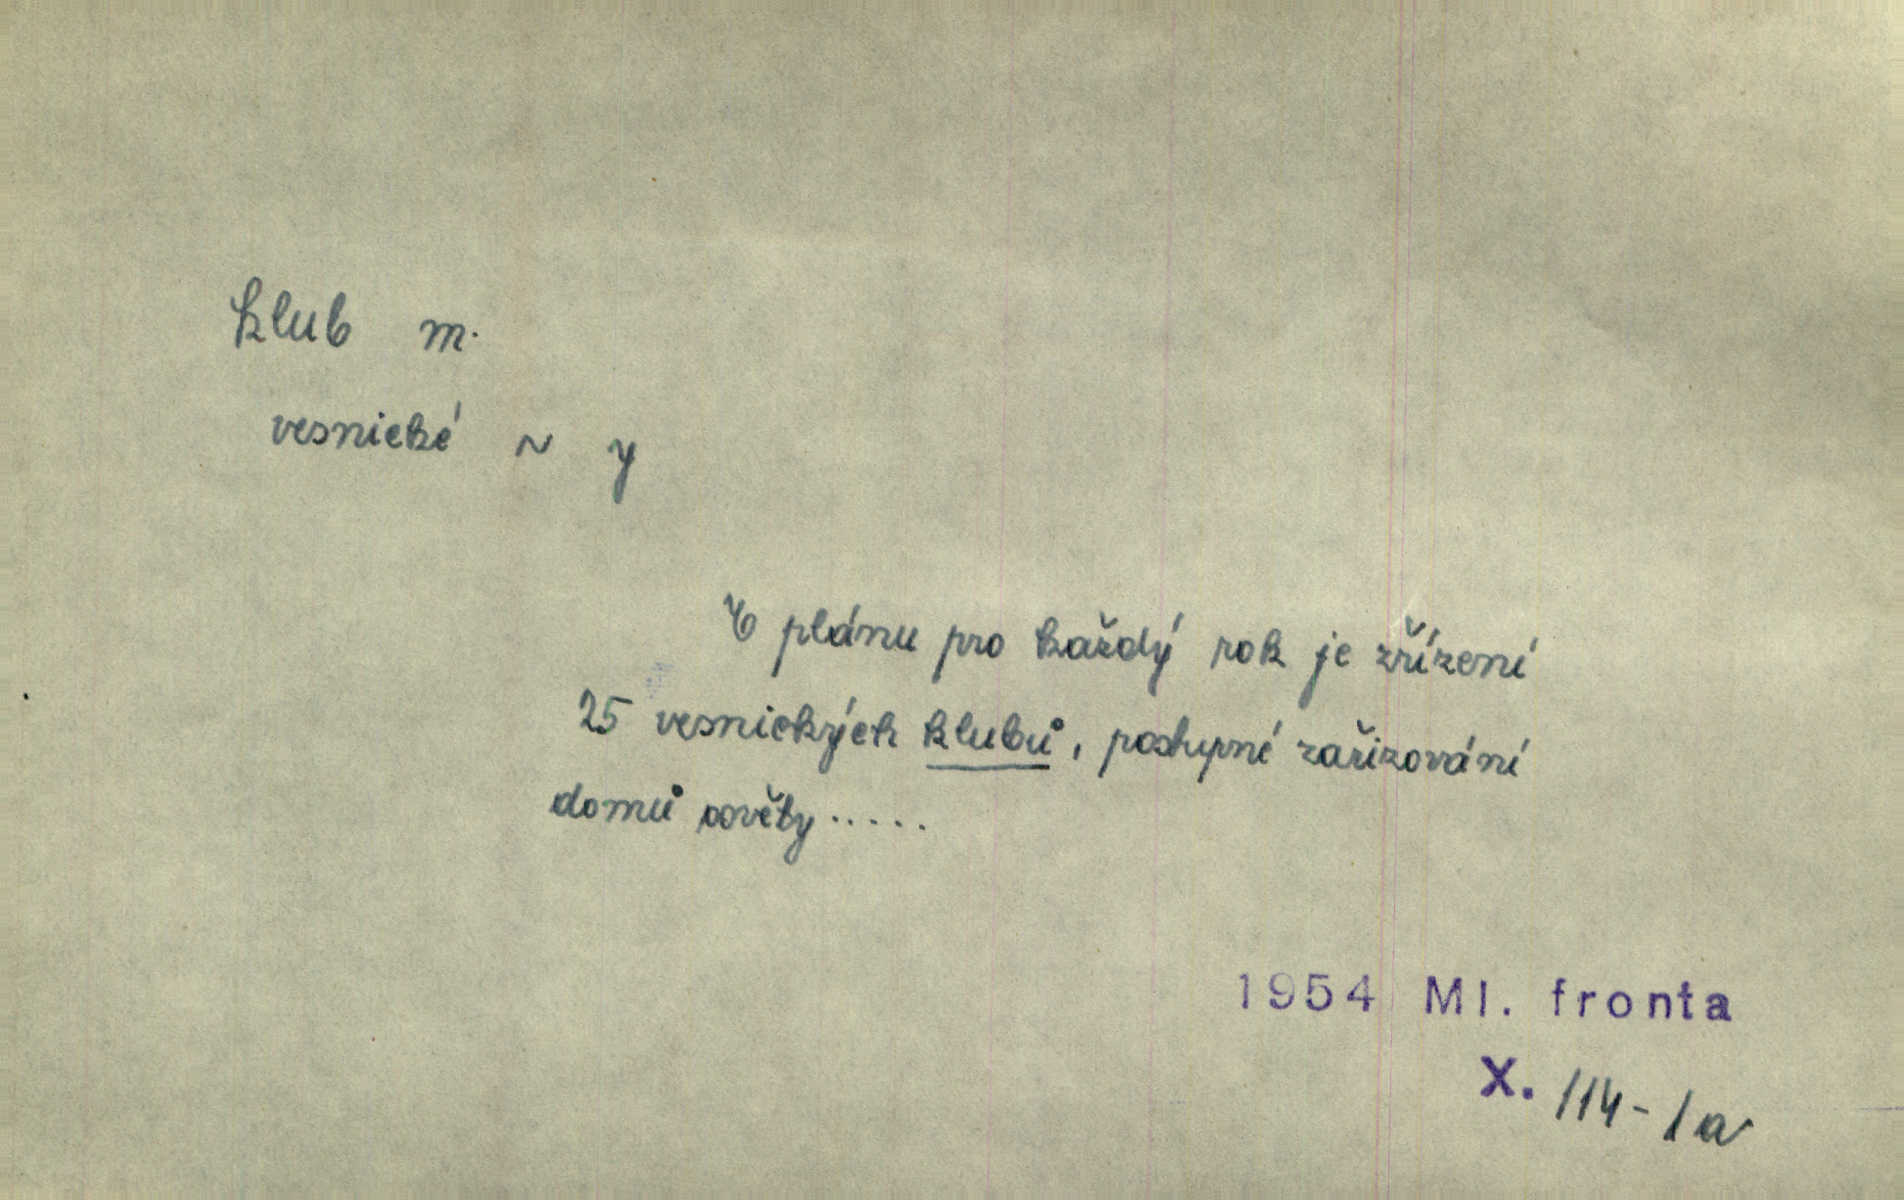 klub m.
vesnické ~ y
V plánu pro každý rok je zřízení
25 vesnických klubů, postupné zařizování
domů osvěty.....
1954 Ml. fronta
X. 114-1a